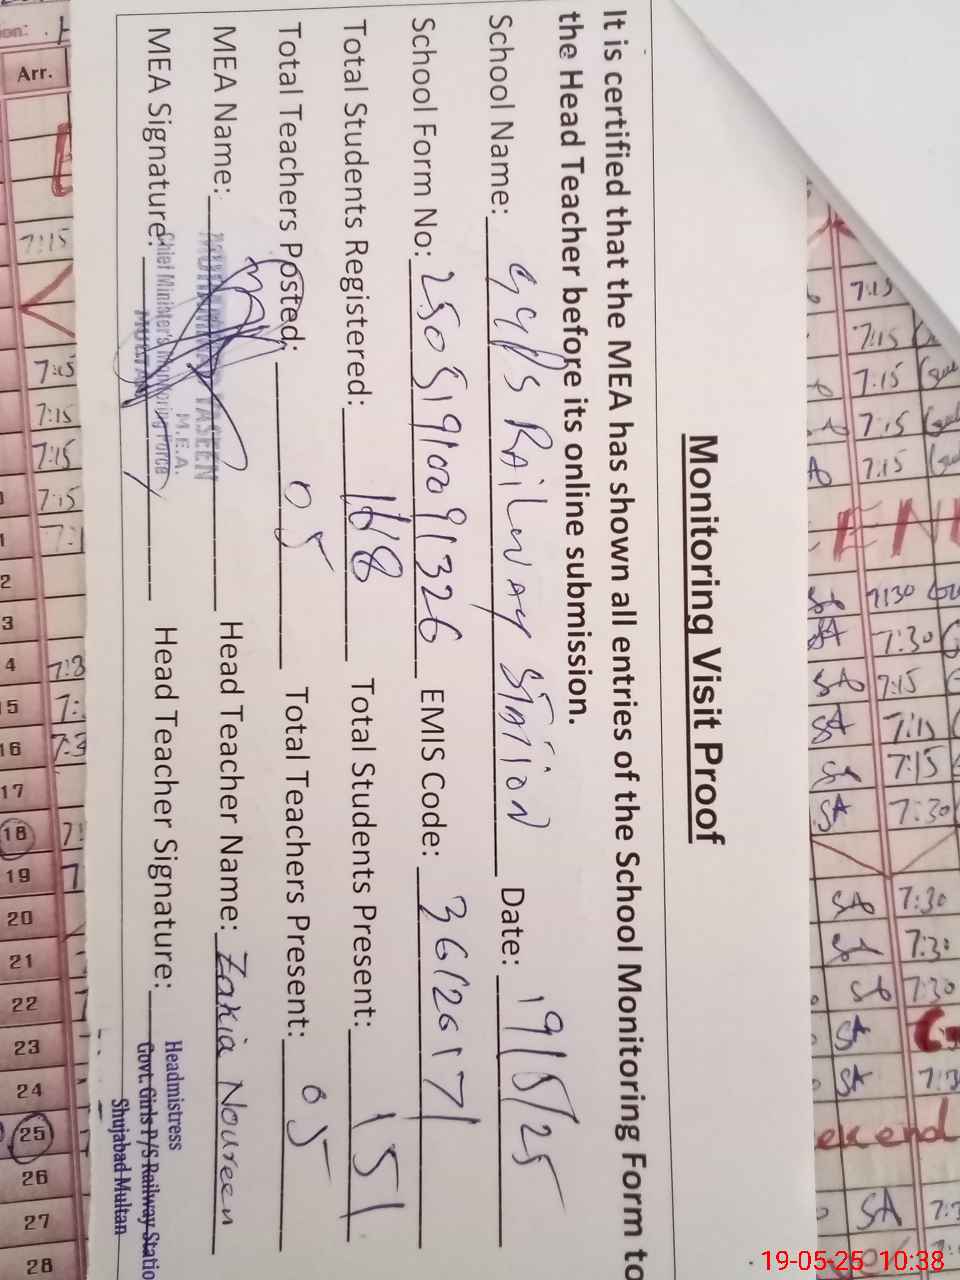 Monitoring Visit Proof
It is certified that the MEA has shown all entries of the School Monitoring Form to
the Head Teacher before its online submission.
School Name: GGP/S RAilway Station Date: 19/5/25
School Form No: 25051910091326 EMIS Code: 36120171
Total Students Registered: 168 Total Students Present: 151
Total Teachers Posted: 05 Total Teachers Present: 05
MEA Name: MUHAMMAD YASEEN Head Teacher Name: Zakia Noureen
M.E.A.
MEA Signature: Chief Minister's Monitoring Force Head Teacher Signature:
MULTAN
Headmistress
Govt. Girls P/S Railway Statio
Shujabad Multan
Arr.
7:15
7:15
7:15
7:15
7:15
16
17
18
19
20
21
22
23
24
25
26
27
28
7:15
7:15
7:15
7:15
7:15
7:30
7:30
7:15
7:15
7:15
7:30
7:30
7:30
7:30
19-05-25 10:38